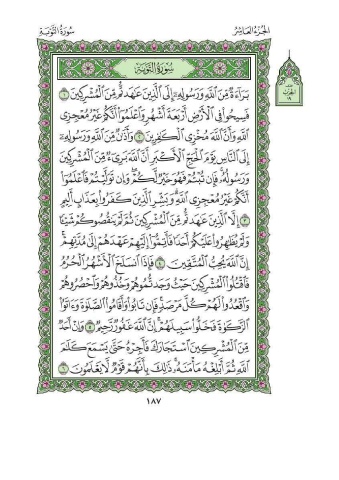 الجزء العاشر
سورة التوبة
سُورَةُ التَّوْبَةِ
بَرَآءَةٌ مِّنَ اللَّهِ وَرَسُولِهِۦٓ إِلَى الَّذِينَ عَٰهَدتُّم مِّنَ الْمُشْرِكِينَ ١
فَسِيحُوا۟ فِى الْأَرْضِ أَرْبَعَةَ أَشْهُرٍ وَاعْلَمُوٓا۟ أَنَّكُمْ غَيْرُ مُعْجِزِى
اللَّهِ وَأَنَّ اللَّهَ مُخْزِى الْكَٰفِرِينَ ٢ وَأَذَٰنٌ مِّنَ اللَّهِ وَرَسُولِهِۦٓ
إِلَى النَّاسِ يَوْمَ الْحَجِّ الْأَكْبَرِ أَنَّ اللَّهَ بَرِىٓءٌ مِّنَ الْمُشْرِكِينَ
وَرَسُولُهُۥ فَإِن تُبْتُمْ فَهُوَ خَيْرٌ لَّكُمْ وَإِن تَوَلَّيْتُمْ فَاعْلَمُوٓا۟
أَنَّكُمْ غَيْرُ مُعْجِزِى اللَّهِ وَبَشِّرِ الَّذِينَ كَفَرُوا۟ بِعَذَابٍ أَلِيمٍ
٣ إِلَّا الَّذِينَ عَٰهَدتُّم مِّنَ الْمُشْرِكِينَ ثُمَّ لَمْ يَنقُصُوكُمْ شَيْـًٔا
وَلَمْ يُظَٰهِرُوا۟ عَلَيْكُمْ أَحَدًا فَأَتِمُّوٓا۟ إِلَيْهِمْ عَهْدَهُمْ إِلَىٰ مُدَّتِهِمْ
إِنَّ اللَّهَ يُحِبُّ الْمُتَّقِينَ ٤ فَإِذَا انسَلَخَ الْأَشْهُرُ الْحُرُمُ
فَاقْتُلُوا۟ الْمُشْرِكِينَ حَيْثُ وَجَدتُّمُوهُمْ وَخُذُوهُمْ وَاحْصُرُوهُمْ
وَاقْعُدُوا۟ لَهُمْ كُلَّ مَرْصَدٍ فَإِن تَابُوا۟ وَأَقَامُوا۟ الصَّلَوٰةَ وَءَاتَوُا۟
الزَّكَوٰةَ فَخَلُّوا۟ سَبِيلَهُمْ إِنَّ اللَّهَ غَفُورٌ رَّحِيمٌ ٥ وَإِنْ أَحَدٌ
مِّنَ الْمُشْرِكِينَ اسْتَجَارَكَ فَأَجِرْهُ حَتَّىٰ يَسْمَعَ كَلَٰمَ
اللَّهِ ثُمَّ أَبْلِغْهُ مَأْمَنَهُۥ ذَٰلِكَ بِأَنَّهُمْ قَوْمٌ لَّا يَعْلَمُونَ ٦
١٨٧